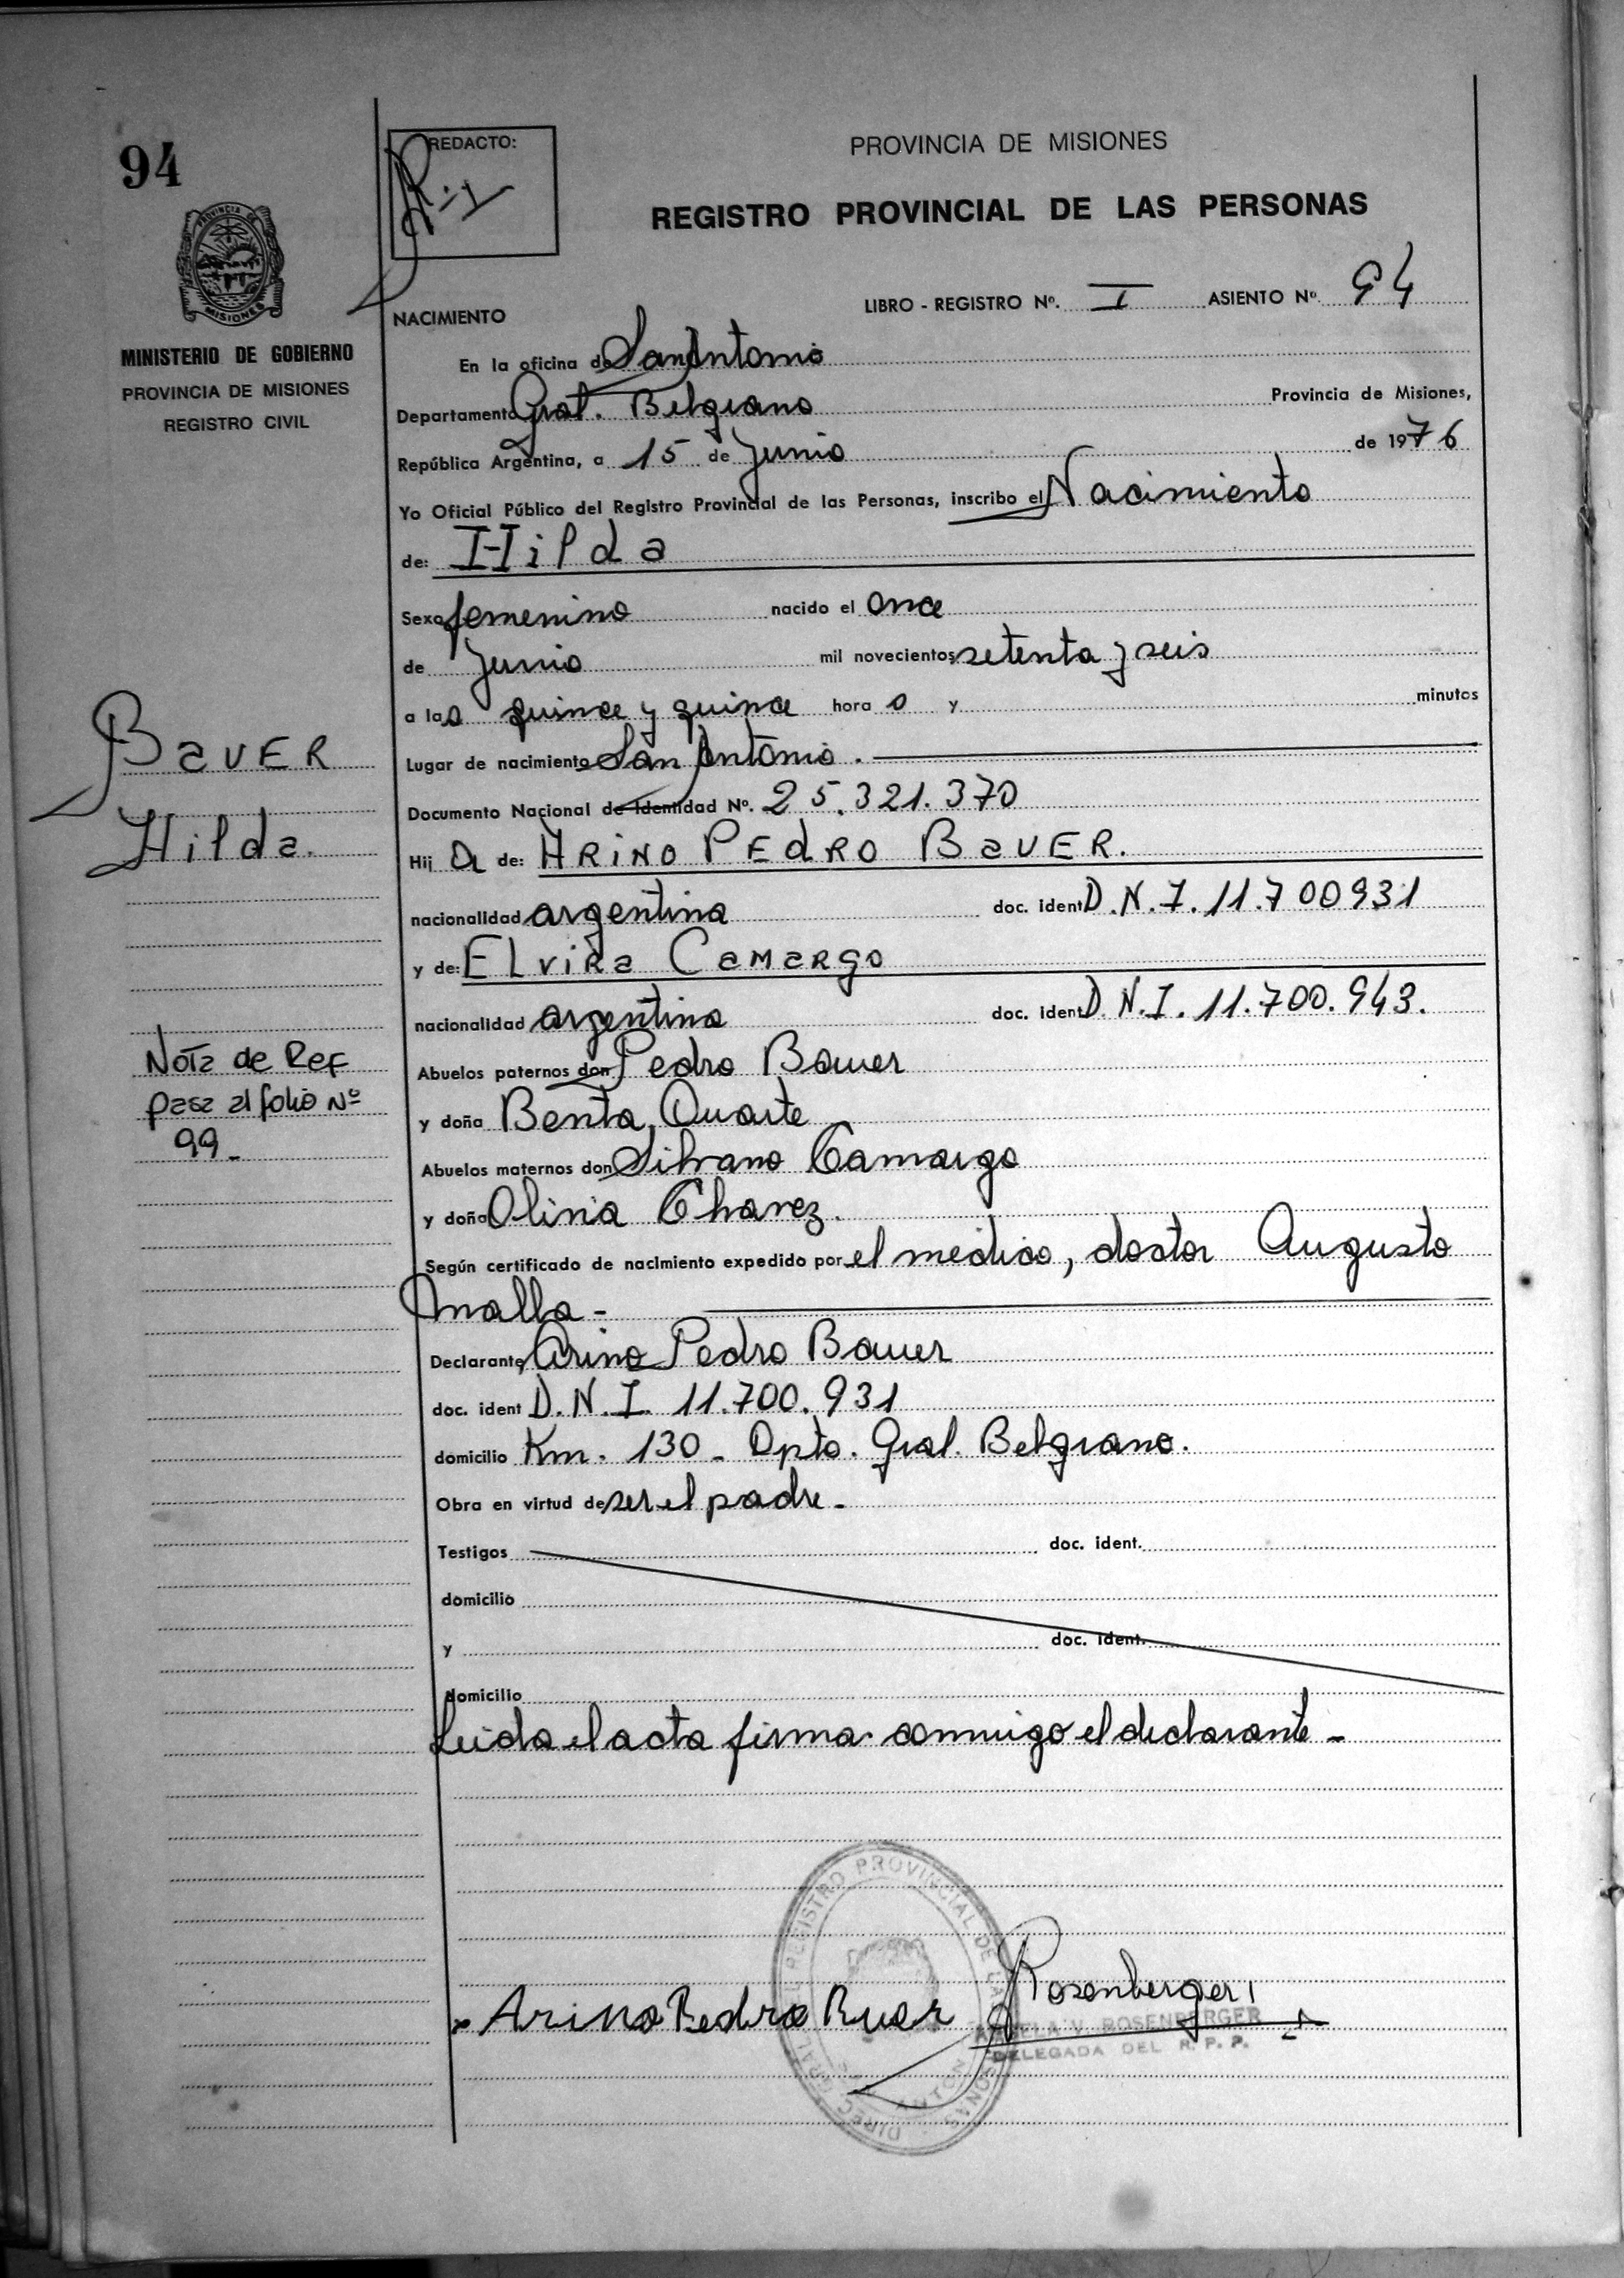 94
REDACTO:
PROVINCIA DE MISIONES
REGISTRO PROVINCIAL DE LAS PERSONAS
PROVINCIA DE
MISIONES
MINISTERIO DE GOBIERNO
PROVINCIA DE MISIONES
REGISTRO CIVIL
LIBRO - REGISTRO Nº. I ASIENTO Nº 94
NACIMIENTO
En la oficina de San Antonio
Departamento Gral. Belgrano Provincia de Misiones,
República Argentina, a 15 de Junio de 1976
Yo Oficial Público del Registro Provincial de las Personas, inscribo el Nacimiento
de: Hilda
Sexo femenino nacido el once
de Junio mil novecientos setenta y seis
a las quince y quince hora s y minutos
Lugar de nacimiento San Antonio.
Documento Nacional de Identidad Nº. 25.321.370
Hij a de: ARINO PEdRO BaUER.
nacionalidad argentina doc. ident D.N.I. 11.700931
y de: ELviRa CaMaRgo
nacionalidad argentina doc. ident D.N.I. 11.700.943.
Abuelos paternos don Pedro Bauer
y doña Benta Duarte
Abuelos maternos don Silvano Camargo
y doña Olivia Chavez.
Según certificado de nacimiento expedido por el médico, doctor Augusto
Malla -
Declarante Arino Pedro Bauer
doc. ident D.N.I. 11.700.931
domicilio Km. 130 - Dpto. Gral. Belgrano.
Obra en virtud de ser el padre -
Testigos doc. ident.
domicilio
y doc. ident.
domicilio
Leida el acta firma conmigo el declarante -
BaUER
Hilda.
Nota de Ref
pasa al folio Nº
99 -
Arino Pedro Buer
Rosenberger
V. ROSENBERGER
DELEGADA DEL R. P. P.
REGISTRO PROVINCIAL DE